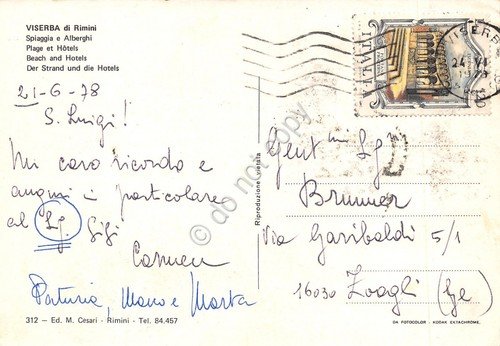 VISERBA di Rimini
Spiaggia e Alberghi
Plage et Hôtels
Beach and Hotels
Der Strand und die Hotels
21-6-78
S. Luigi!
Un caro ricordo e
auguri in particolare
al Sg. Gigi
Carmen
Marco e Marta
312 - Ed. M. Cesari - Rimini - Tel. 84.457
Riproduzione vietata
ITALIA
120
VISERBA
24 VI
Gent.mi Sg.
Brunner
Via Garibaldi 5/1
16030 Zoagli (Ge)
DA FOTOCOLOR - KODAK EKTACHROME.
do not copy